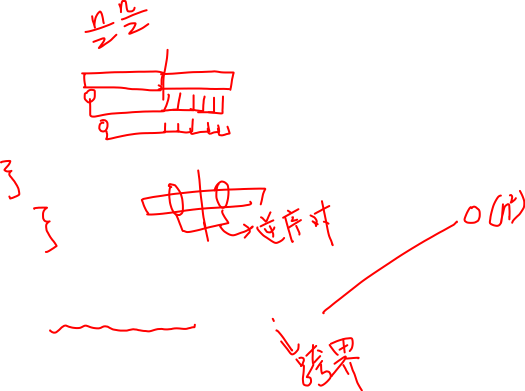 n/2 n/2
逆序对
O(n²)
跨界